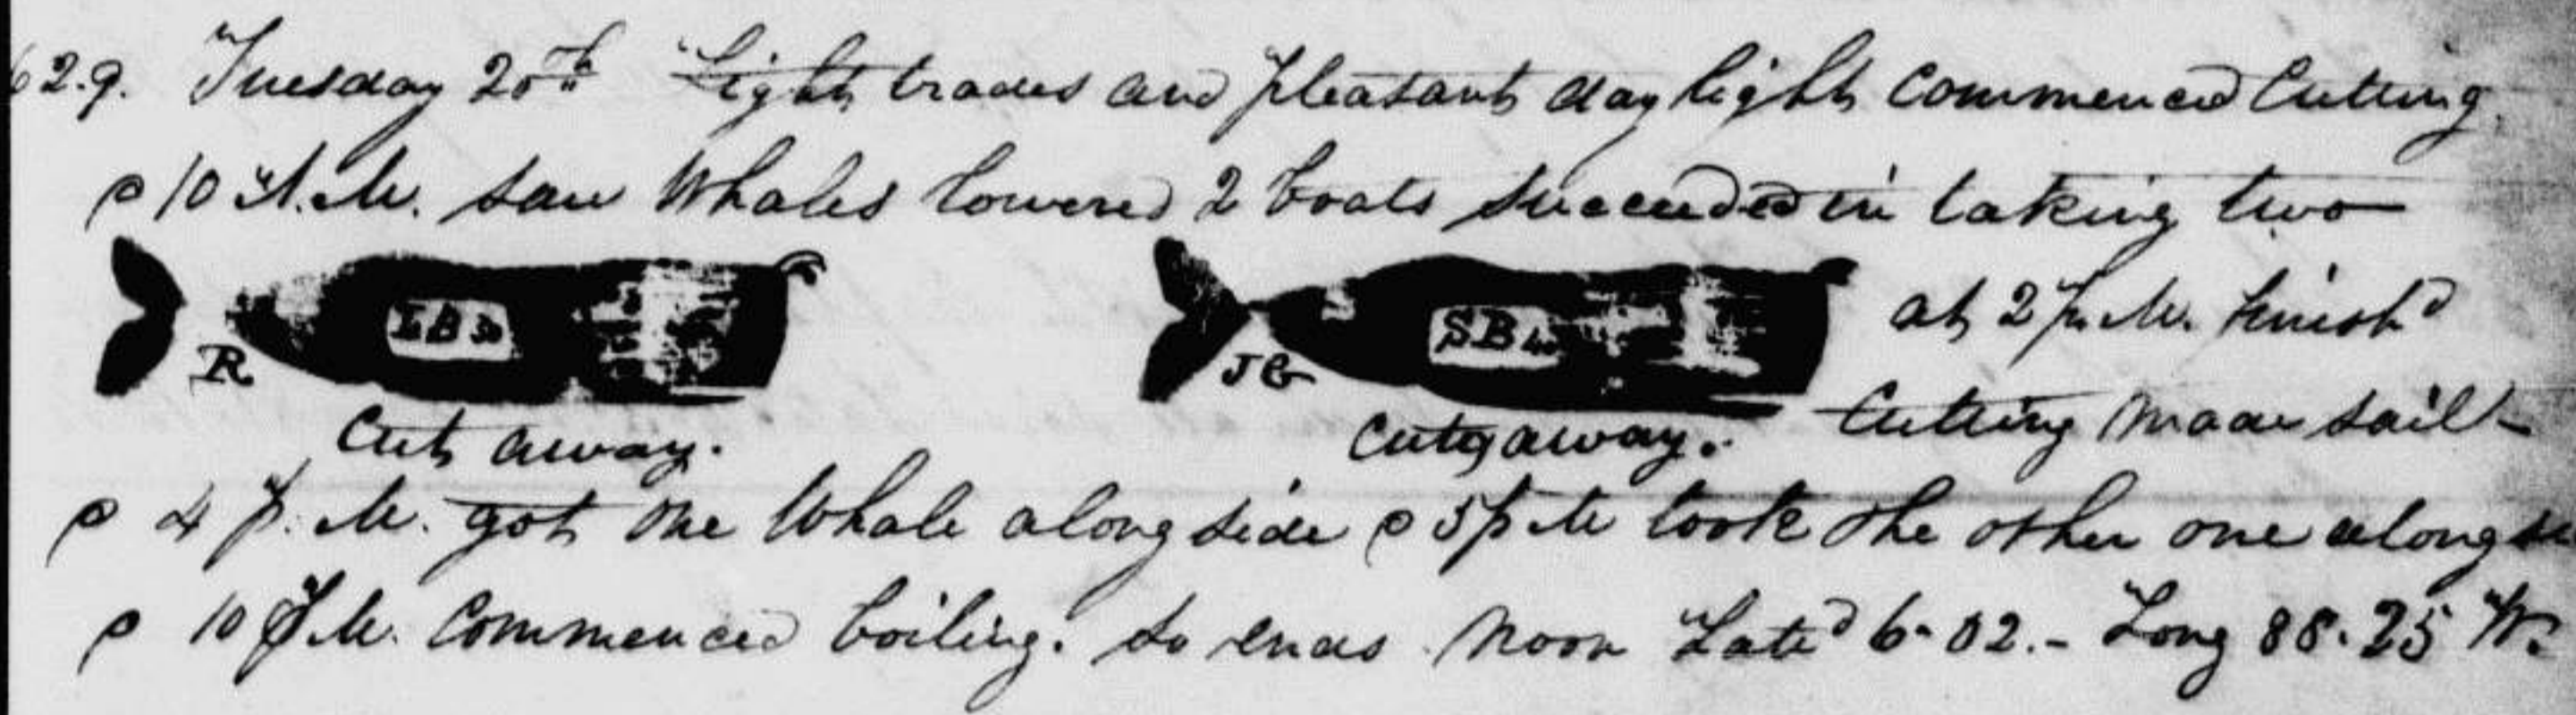 62.9. Tuesday 20th Light trades and pleasant day light Commenced Cutting.
@ 10 A.M. saw Whales lowered 2 boats Succeeded in taking two
LB 30
SB 40
at 2 P.M. finishd
R
JG
Cut away.
Cutg away.
Cutting made sail
@ 4 P.M. got one Whale along side @ 5 P M took the other one along si
@ 10 P.M. Commenced boiling. So ends Noon Latd 6-02.- Long 88.25 W.